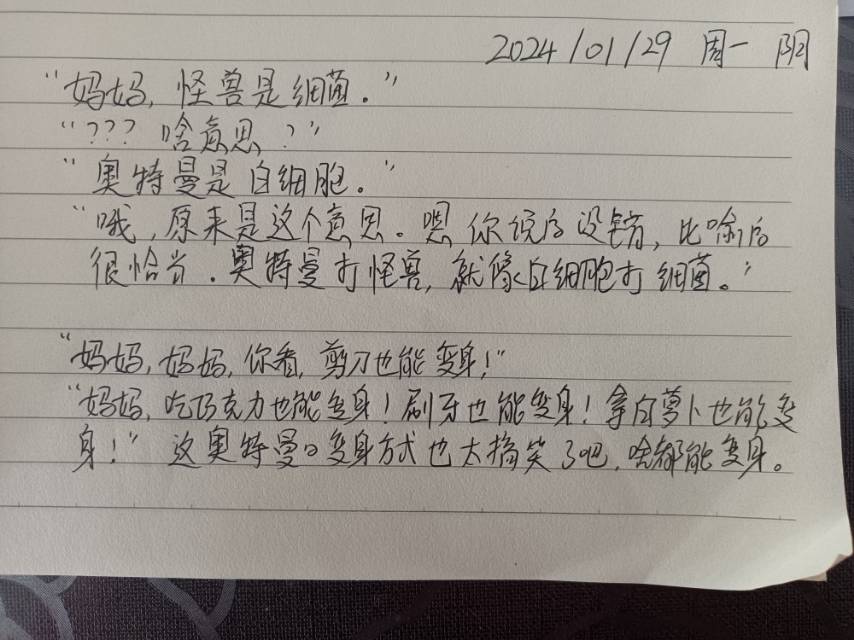 2024/01/29 周一 阴
“妈妈,怪兽是细菌。”
“??? 啥意思?”
“奥特曼是白细胞。”
“哦,原来是这个意思。嗯 你说的没错,比喻的
很恰当。奥特曼打怪兽,就像白细胞打细菌。”
“妈妈,妈妈,你看,剪刀也能变身!”
“妈妈,吃巧克力也能变身!刷牙也能变身!拿白萝卜也能变
身!” 这奥特曼的变身方式也太搞笑了吧,啥都能变身。